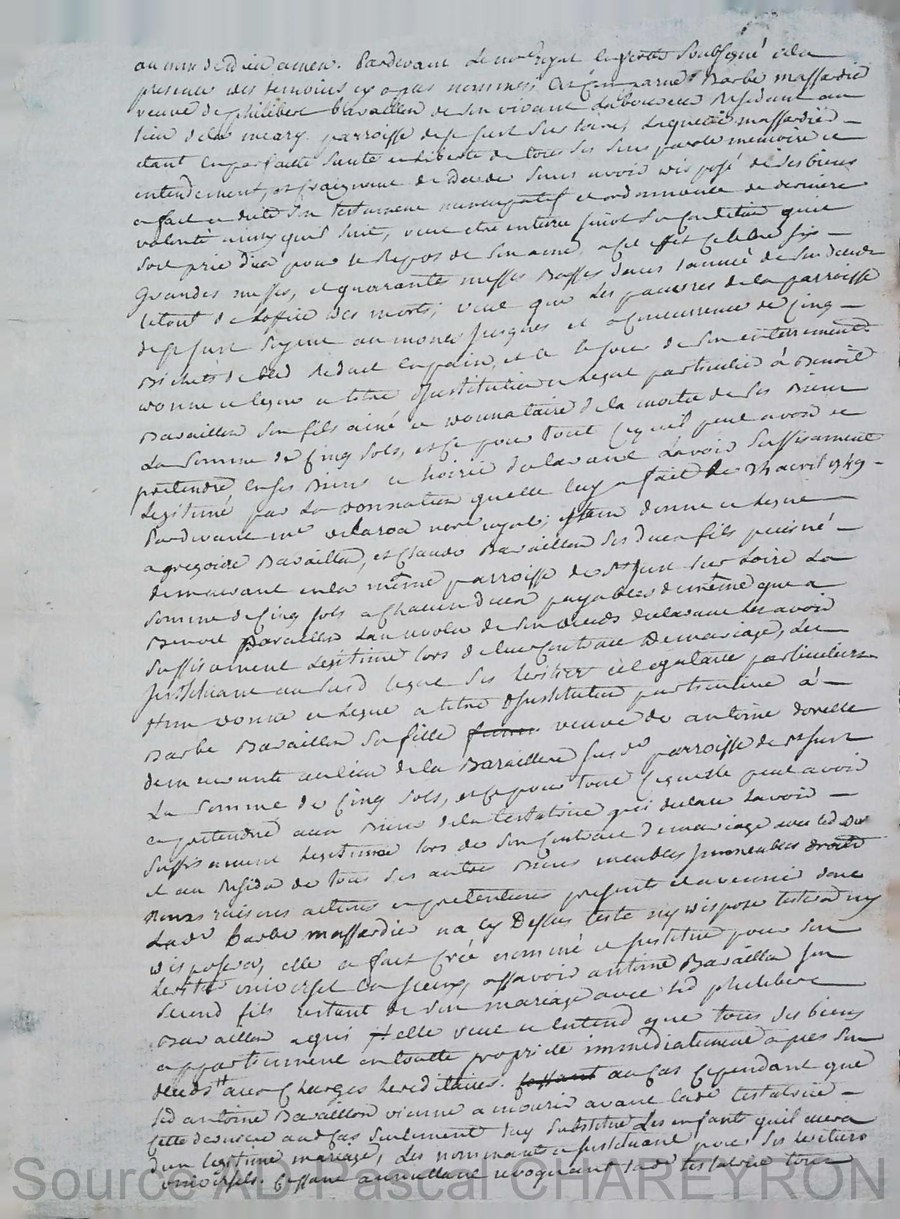 au nom de dieu amen. Pardevant Le not.re royal en soubsigné et en
presence des temoins cy apres nommés est comparue Barbe massardier
veuve de philibert bavaillon de son vivant Laboureur Residant au
lieu de la meary parroisse de st just sur Loire, Laquelle massardier
etant en parfaitte santé et liberté de tous ses sens parole memoire et
entendement, et craignant de deceder sans avoir disposé de ses biens
a fait et dicté son testament nuncupatif et ordonnance de derniere
volonté ainsy quil suit, veut etre enterré suivt sa condition quil
soit prié dieu pour le Repos de son ame, a cet effet celebré six
Grandes messes, et quarante messes Basses dans l'année de son deceds
le tout de loffice des morts, veut que Les pauvres de la parroisse
de st just soyent aumonés jusques et a concurrence de Cinq
Bichets de bled Reduit en pain, et ce le jour de son enterrement
donne et legue a titre d'institution et legue particulier à Benoit
Bavaillon son fils ainé et donnataire de la moitié de ses Biens
La somme de Cinq sols, et ce pour tout ce quil peut avoir et
pretendre en ses Biens et hoirie declarant L'avoir suffisament
Legitimé par La donnation quelle luy a fait le 24 avril 1749
Pardevant me delaroa nore royal; item donne et legue
a gregoire Bavaillon, et Claude Bavaillon ses deux fils puisné
demeurant en la même parroisse de st Just sur Loire La
somme de Cinq sols a chacun deux payables de même que a
Benoit Bavaillon lan revolu de son deceds declarant les avoir
suffisament Legitimé lors de leur Contrat de mariage, Les
instituant audit legue ses heritiers et legataire particuliers
item donne et legue a titre d'institution particuliere à
Barbe Bavaillon sa fille veuve de antoine dorelle
demeurante au lieu de la Baraillere susde parroisse de st just
La somme de Cinq sols, et ce pour tout ce quelle peut avoir
et pretendre aux Biens de la testatrice qui declare Lavoir
suffisament legitimé lors de son Contrat de mariage avec led do
et au Residu de tous ses autres Biens meubles immeubles droits
noms raisons actions et pretentions presents et avenir dont
Lade barbe massardier na cy Dessus testé ny disposé testera ny
disposera, elle a fait créé nommé et institué pour son
heritier universel assavoir antoine Bavaillon son
second fils restant de son mariage avec led philibert
Bavaillon a qui elle veut et entend que tous ses biens
appartiennent en toutte proprieté immédiatement apres son
deceds aux Charges hereditaires. au Cas Cependant que
led antoine Bavaillon vienne a mourir avant lade testatrice
cette derniere audt cas seulement luy substitue Les enfants quil aura
dun legitime mariage, Les nommant et instituant pour ses heritiers
universels. Cassant annullant revoquant lade testatrice tous
Source AD Pascal CHAREYRON